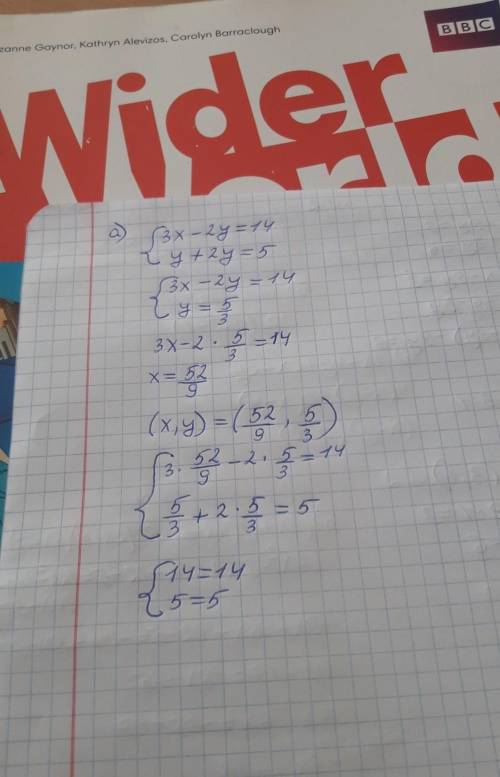 zanne Gaynor, Kathryn Alevizos, Carolyn Barraclough
BBC
Wider
а) {3x - 2y = 14
y + 2y = 5
{3x - 2y = 14
y = 5/3
3x - 2 · 5/3 = 14
x = 52/9
(x, y) = (52/9, 5/3)
{3 · 52/9 - 2 · 5/3 = 14
5/3 + 2 · 5/3 = 5
{14 = 14
5 = 5